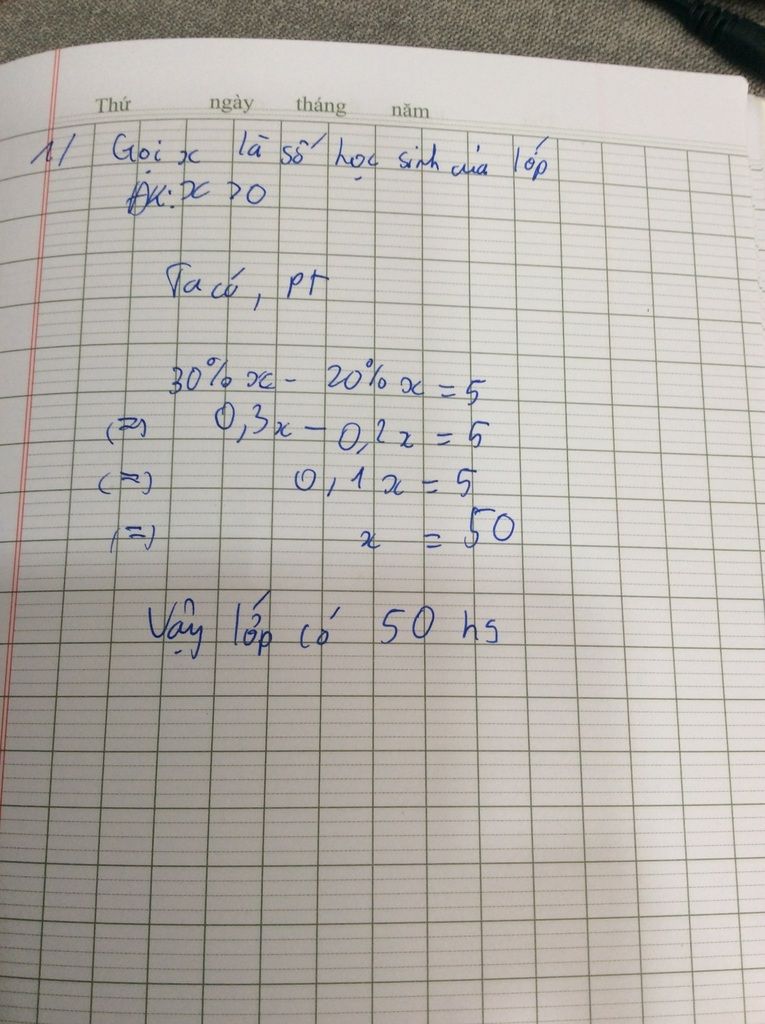 Thứ ngày tháng năm
1/ Gọi x là số học sinh của lớp
ĐK: x > 0
Ta có, PT
30% x - 20% x = 5
(=) 0,3x - 0,2x = 5
(=) 0,1x = 5
(=) x = 50
Vậy lớp có 50 hs